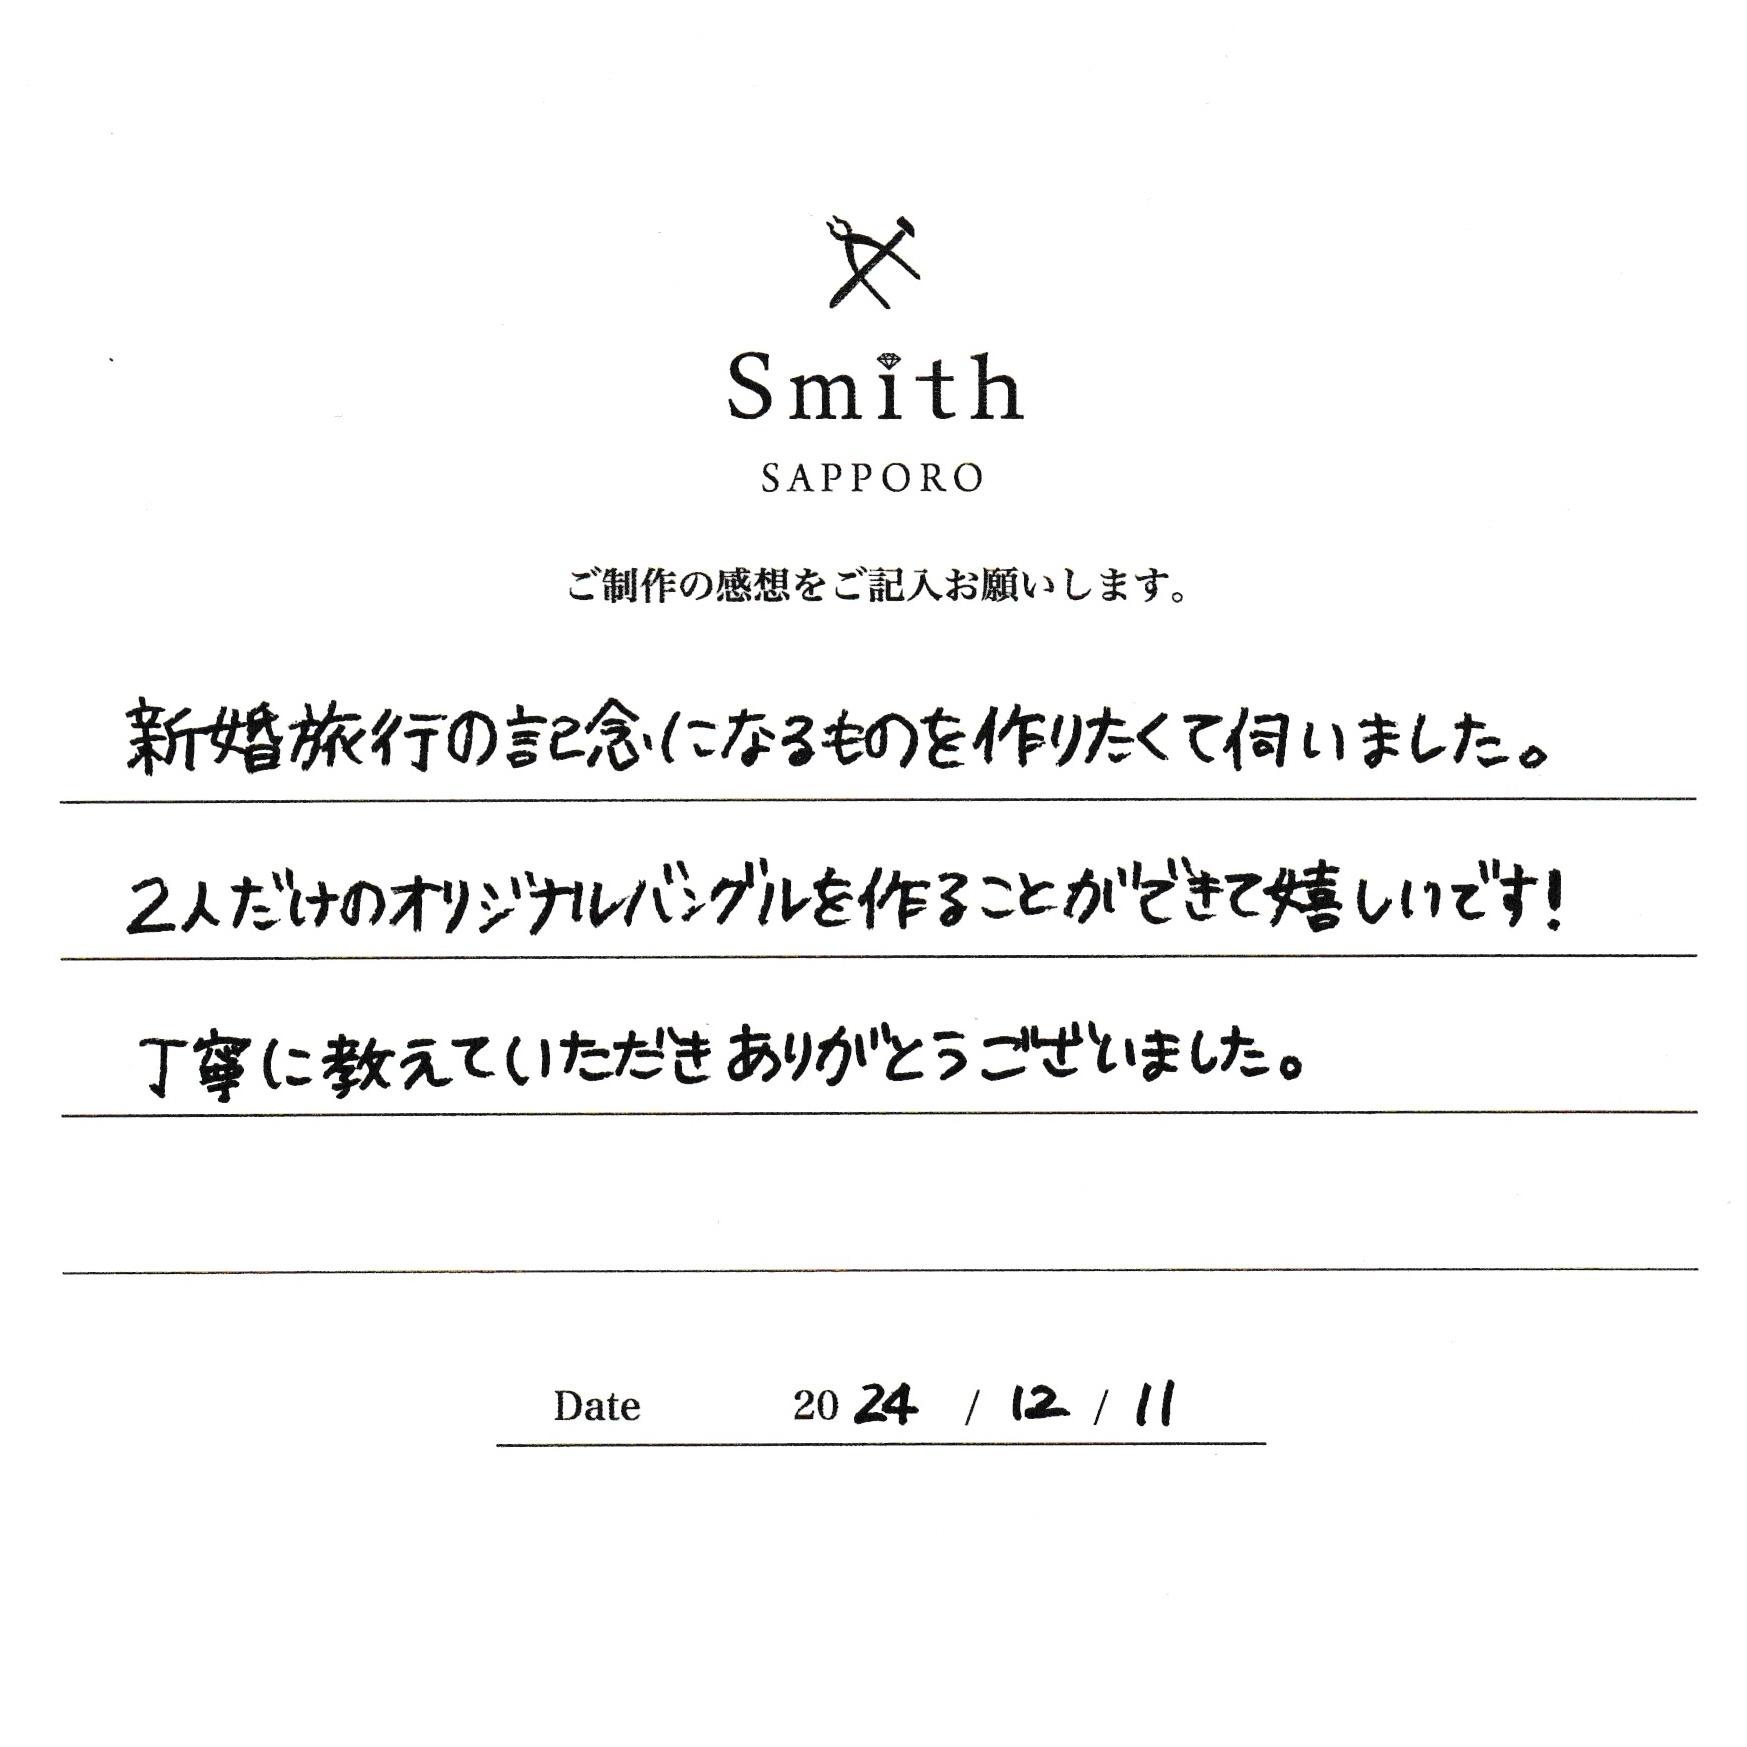 Smith
SAPPORO
ご制作の感想をご記入お願いします。
新婚旅行の記念になるものを作りたくて伺いました。
2人だけのオリジナルバングルを作ることができて嬉しいです!
丁寧に教えていただきありがとうございました。
Date 2024 / 12 / 11